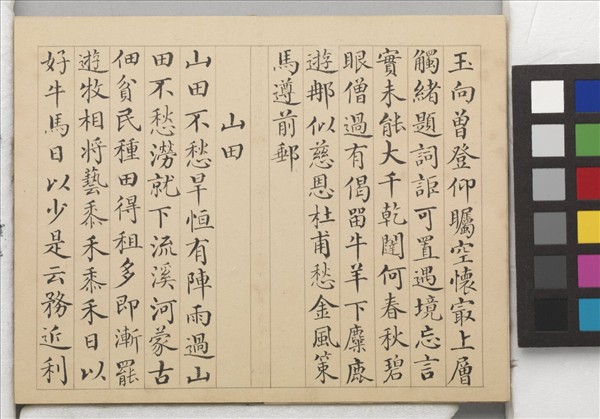 玉向曽登仰矚空懷㝡上層
觸緒題詞詎可置遇境忘言
實未能大千乾闥何春秋碧
眼僧過有偈留牛羊下麋鹿
遊那似慈恩杜甫愁金風策
馬遵前郵
山田
山田不愁旱恒有陣雨過山
田不愁澇就下流溪河蒙古
佃貧民種田得租多即漸罷
遊牧相將藝黍禾黍禾日以
好牛馬日以少是云務近利